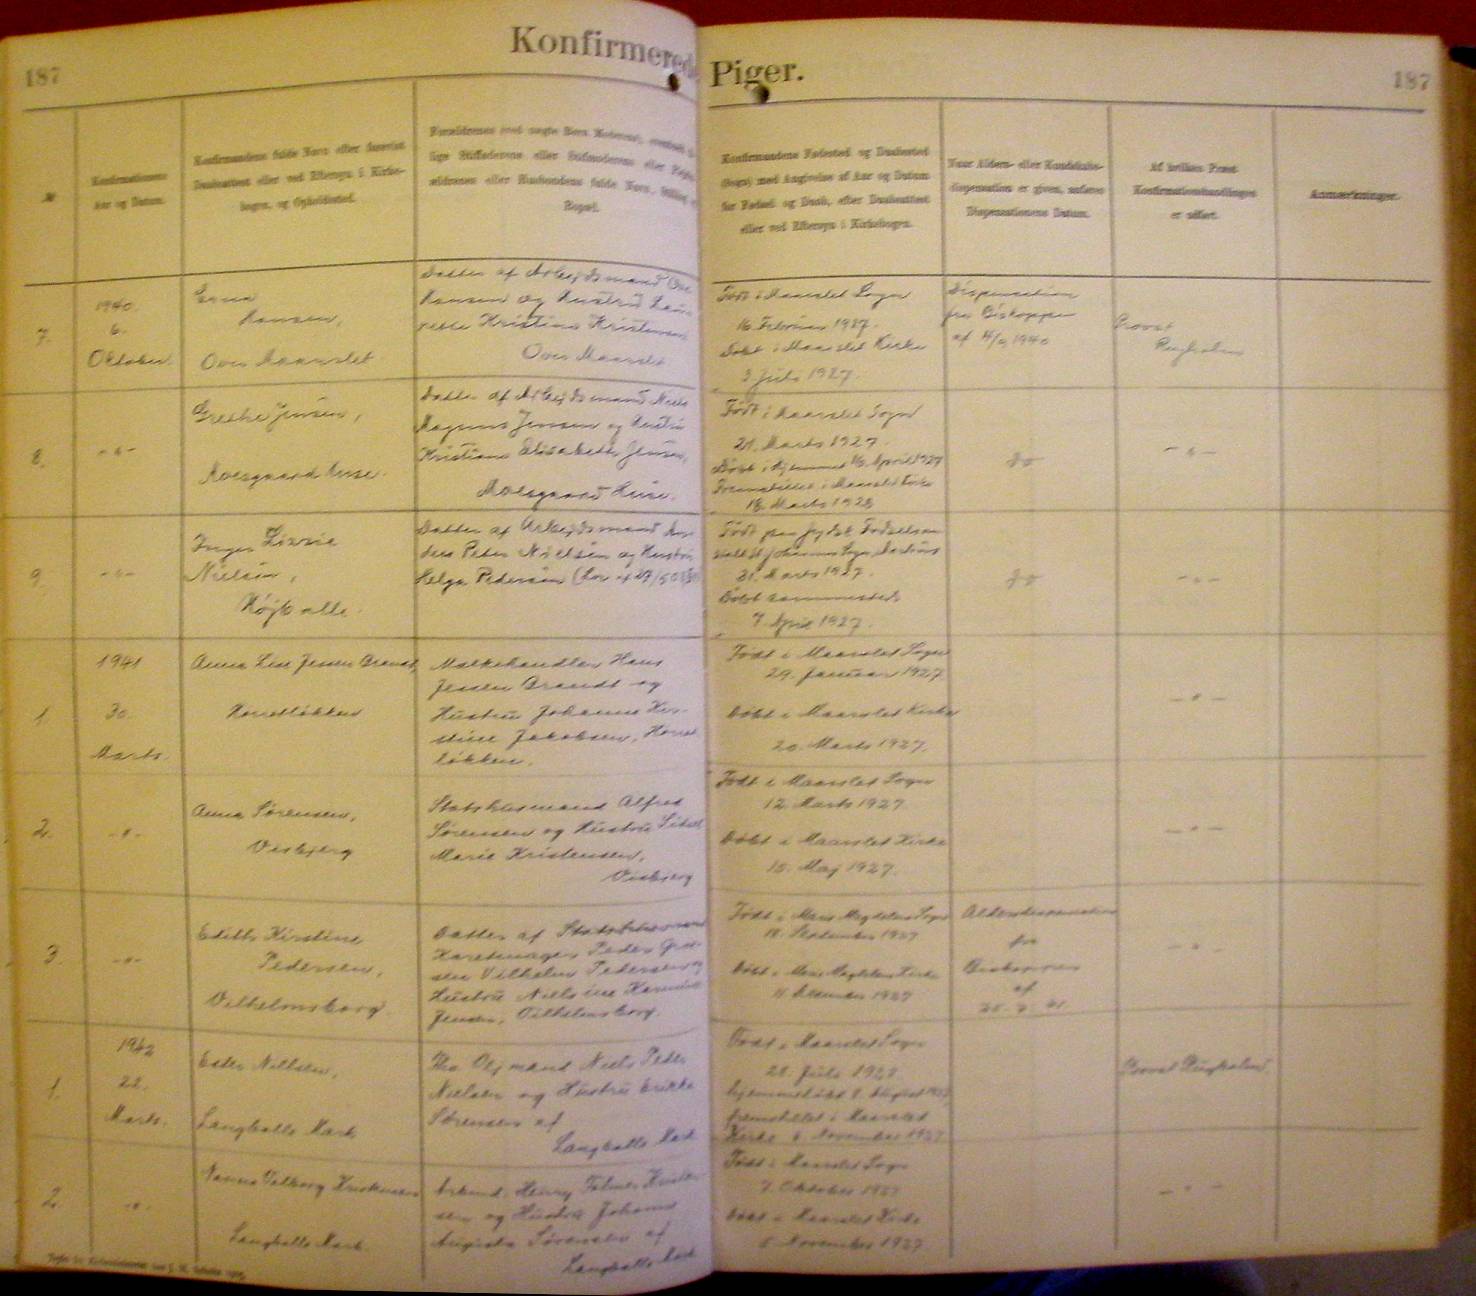 187
Konfirmerede
Piger.
187
№
Konfirmationens
Aar og Datum.
Konfirmandens fulde Navn efter forevist
Daabsattest eller ved Eftersyn i Kirke-
bogen, og Opholdssted.
Forældrenes (ved uægte Børn Moderens), eventuelt
lige Stiffaderens eller Stifmoderens eller Pleje-
ældrenes eller Husbondens fulde Navn, Stilling og
Bopæl.
Konfirmandens Fødested og Daabssted
(Sogn) med Angivelse af Aar og Datum
for Fødsel og Daab, efter Daabsattest
eller ved Eftersyn i Kirkebogen.
Naar Alders- eller Kundskabs-
dispensation er given, anføres
Dispensationens Datum.
Af hvilken Præst
Konfirmationshandlingen
er udført.
Anmærkninger.
7.
1940
6.
Oktober.
Erna
Hansen,
Over Maarslet
Datter af Arbejdsmand Ove
Hansen og Hustru
Kristine Kristensen
Over Maarslet
Født i Maarslet Sogn
16. Februar 1927.
Døbt i Maarslet Kirke
3 Juli 1927.
Dispensation
fra Biskoppen
1940
Provst
8.
-"-
Grethe Jensen,
Moesgaard Huse.
Datter af Arbejdsmand Niels
Magnus Jensen og Hustru
Kristiane Elisabeth Jensen,
Moesgaard Huse.
Født i Maarslet Sogn
21. Marts 1927.
Døbt i Hjemmet April 1927
Fremstillet i Maarslet Kirke
18. Marts 1928
do
-"-
9.
-"-
Inger Lizzie
Nielsen,
Højballe.
Datter af Arbejdsmand An-
ders Peter Nielsen og Hustru
Helga Pedersen
Født paa Jydsk Fødselsan-
stalt Sogn, Aarhus
21. Marts 1927.
Døbt sammesteds
7 April 1927.
do
-"-
1.
1941
30.
Marts.
Anna Lise Jessen Brandt,
Horretløkken
Mælkehandler Hans
Jessen Brandt og
Hustru Johanne Kir-
stine Jakobsen, Horret-
løkken.
Født i Maarslet Sogn
29. Januar 1927
Døbt i Maarslet Kirke
20. Marts 1927.
-"-
2.
-"-
Anna Sørensen,
Visbjerg
Statshusmand Alfred
Sørensen og Hustru Sidsel
Marie Kristensen,
Visbjerg
Født i Maarslet Sogn
12. Marts 1927
Døbt i Maarslet Kirke
15. Maj 1927.
-"-
3.
-"-
Edith Kirstine
Pedersen,
Vilhelmsborg.
Datter af
Karetmager Peder
Vilhelm Pedersen og
Hustru Nielsine
Jensen, Vilhelmsborg.
Født i Maria Magdalene Sogn
18. September 1927
Døbt i Maria Magdalene Kirke
11 December 1927
Aldersdispensation
fra
Biskoppen
af
-"-
1.
1942
22.
Marts.
Ester Nielsen,
Langballe Mark
Niels Peder
Nielsen og Hustru
Sørensen af
Langballe Mark
Født i Maarslet Sogn
Juli
hjemmedøbt August
fremstillet i Maarslet
Kirke 6. November 1927
Provst
2.
-"-
Kristensen
Langballe Mark.
Henry Folmer Kristen-
sen og Hustru Johanne
Augusta Sørensen af
Langballe Mark
Født i Maarslet Sogn
7. Oktober 1927
Døbt i Maarslet Kirke
November 1927
-"-